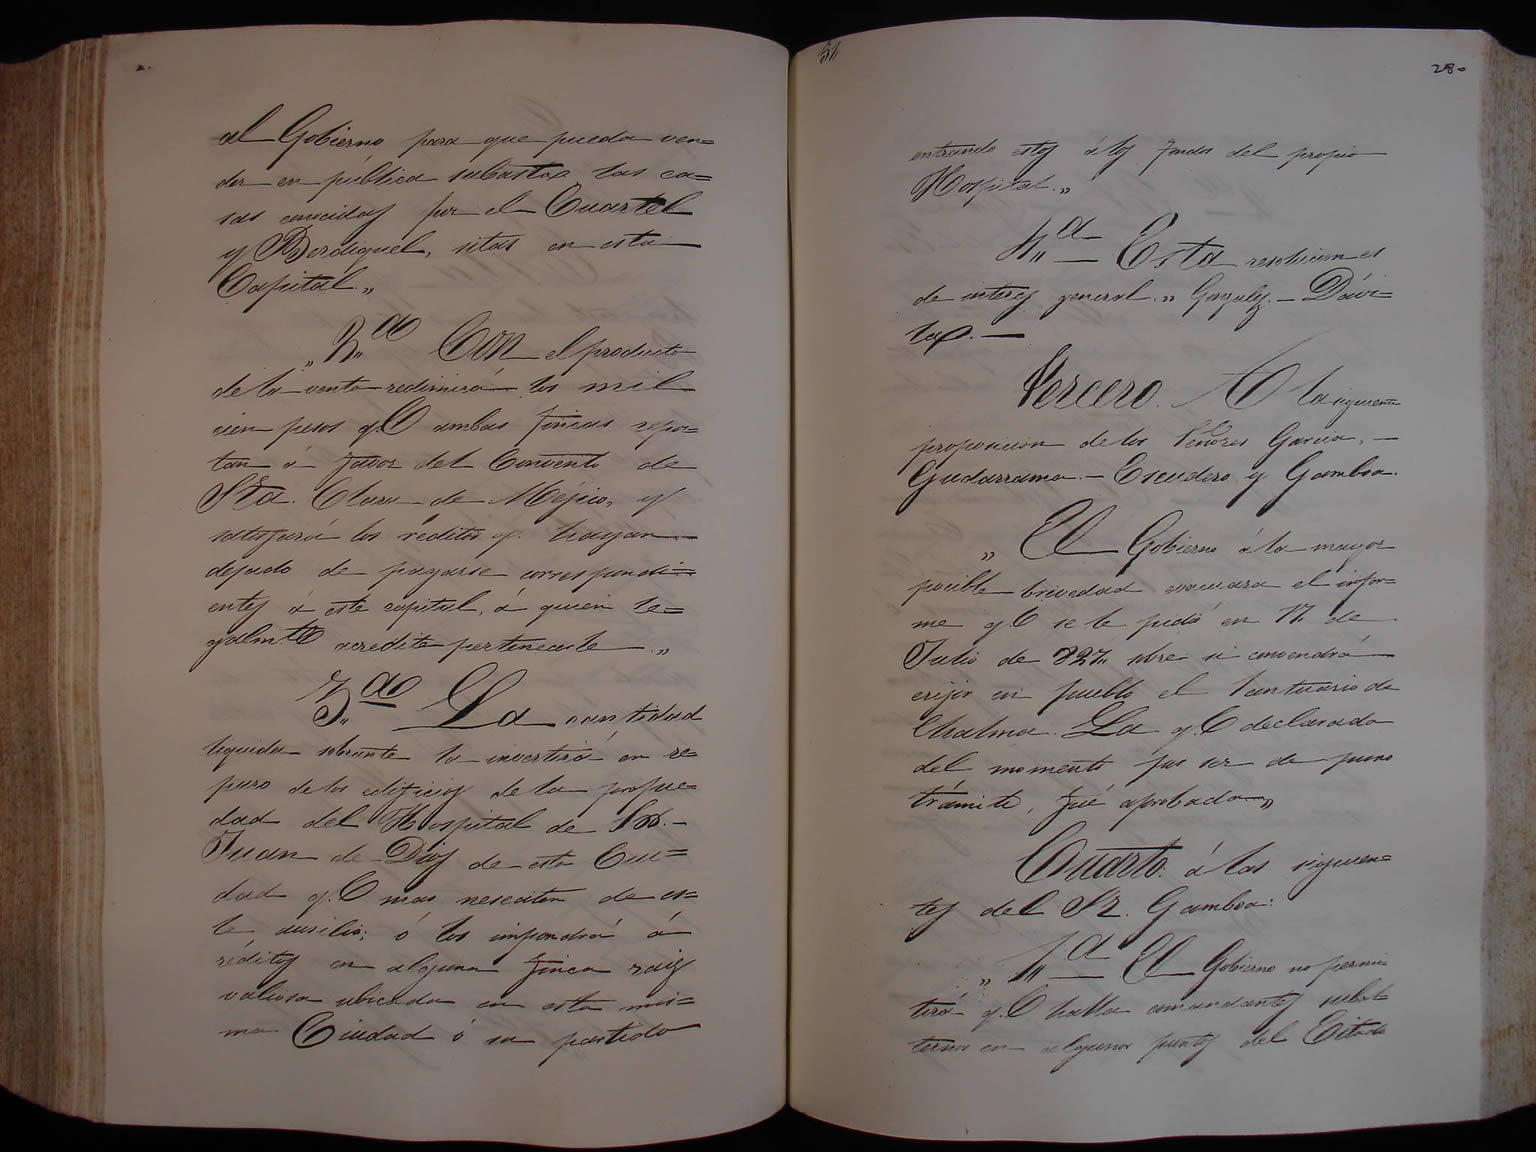 2.
al Gobierno para que pueda ven=
der en pública subasta las ca=
sas conocidas por el Cuartel
y Berdiguel, sitas en esta
Capital."
"2ª Con el producto
de la venta redimirá los mil
cien pesos q.e ambas fincas repor=
tan á favor del Convento de
Sta. Clara de Mejico, y
satisfará los réditos q.e hayan
dejado de pagarse correspondi=
entes á este capital, á quien le=
galm.te acredite pertenecerle."
3ª La cantidad
liquida sobrante la invertirá en re=
paro de los edificios de la propie=
dad del Hospital de Sn.
Juan de Dios de esta Ciu=
dad q.e mas nesesiten de es=
te ausilio; ó los impondrá á
réditos en alguna finca raiz
valiosa ubicada en esta mis=
ma Ciudad ó su partido
280
entrando estos á los fondos del propio
Hospital."
4ª Esta resolucion es
de interes general." Gonzalez.—Dávi=
la.—
Tercero. A la siguiente
proposicion de los Señores Garcia,—
Guadarrama.—Escudero y Gamboa.
"El Gobierno á la mayor
posible brevedad evacuara el infor=
me q.e se le pidió en 17 de
Julio de 827 sobre si convendrá
erijir en pueblo el Santuario de
Chalma. La q.e declarada
del momento por ser de puro
trámite, fué aprobada"
Cuarto. á las siguien=
tes del Sr. Gamboa:
"1ª El Gobierno no permi
tirá q.e halla comandantes subal=
ternos en algunos puntos del Estado